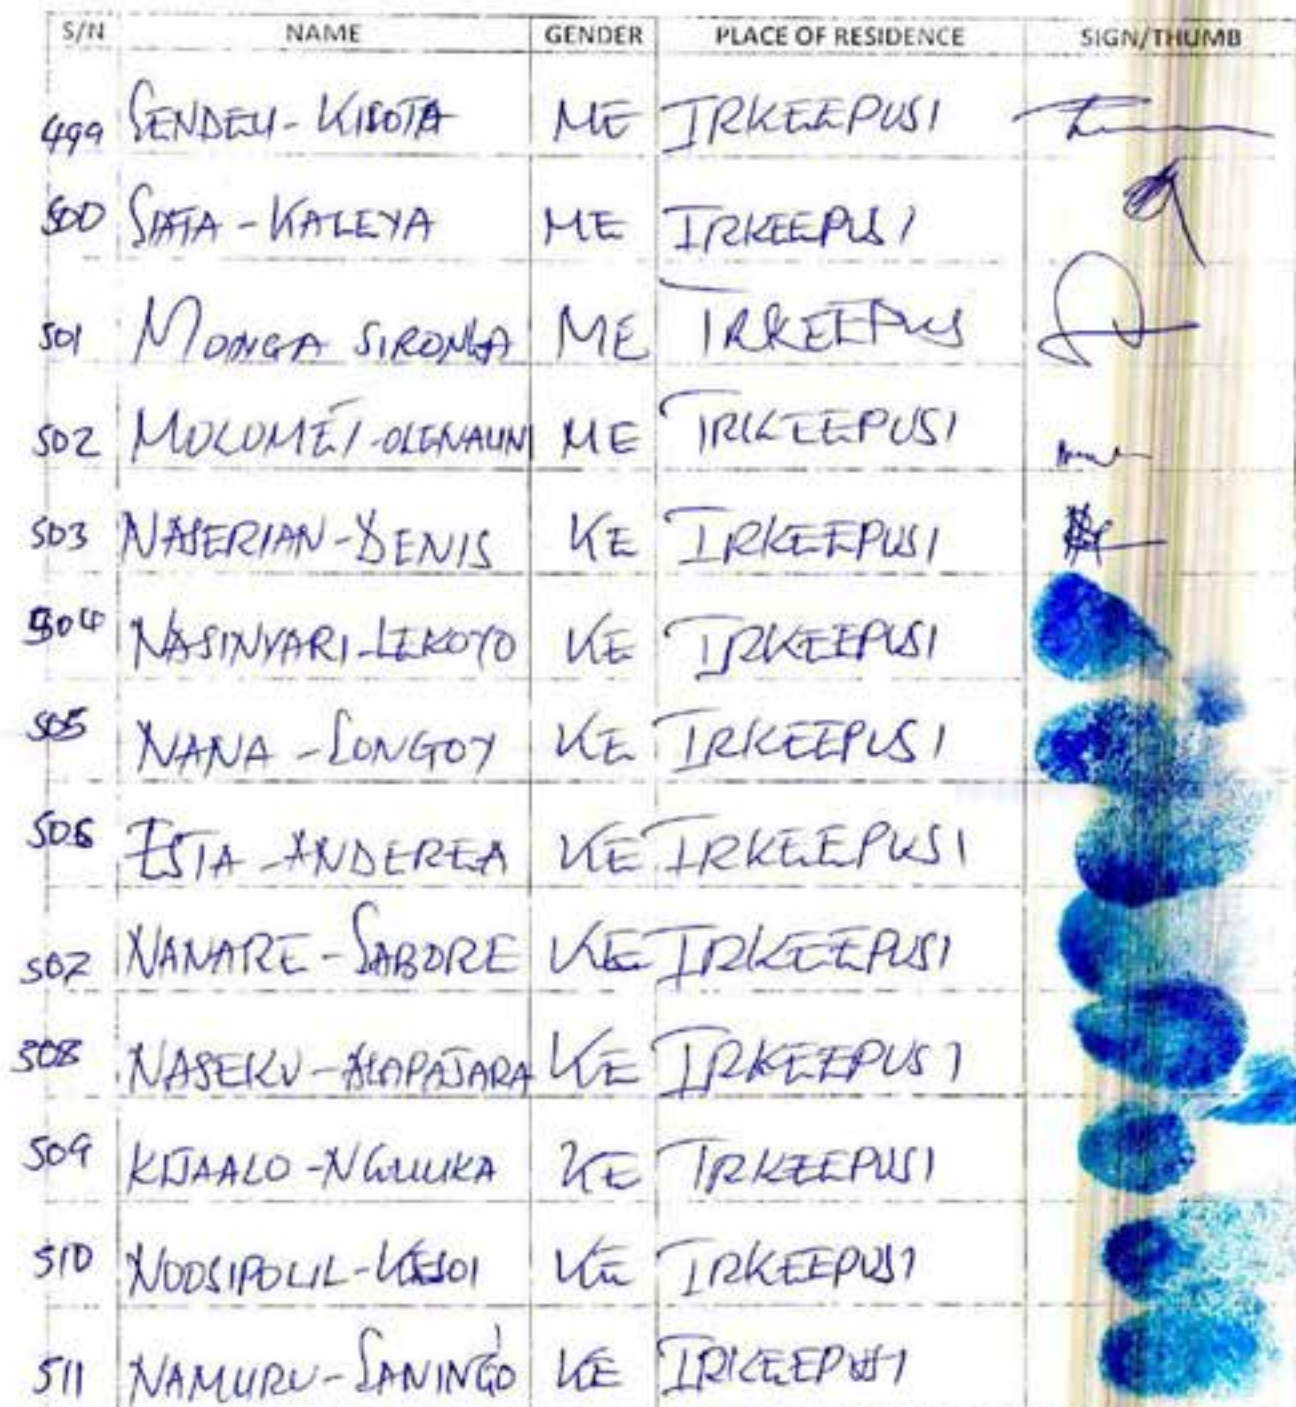 S/N NAME GENDER PLACE OF RESIDENCE SIGN/THUMB
499 SENDEU - KISOTA ME IRKEEPUSI
500 SIATA - KALEYA ME IRKEEPUSI
501 MOINGA SIRONGA ME IRKEEPUS
502 MOLOMEI - OLENAUN ME IRKEEPUSI
503 NASERIAN - DENIS KE IRKEEPUSI
504 NASINYARI - LEKOYO KE IRKEEPUSI
505 NANA - LONGOY KE IRKEEPUSI
506 ESTA - ANDEREA KE IRKEEPUSI
507 NANARE - SABORE KE IRKEEPUSI
508 NASEKU - KE IRKEEPUSI
509 KIJAALO - NGULUKA KE IRKEEPUSI
510 NOOSIPOLIL - KESOI KE IRKEEPUSI
511 NAMURU - SANINGO KE IRKEEPUSI